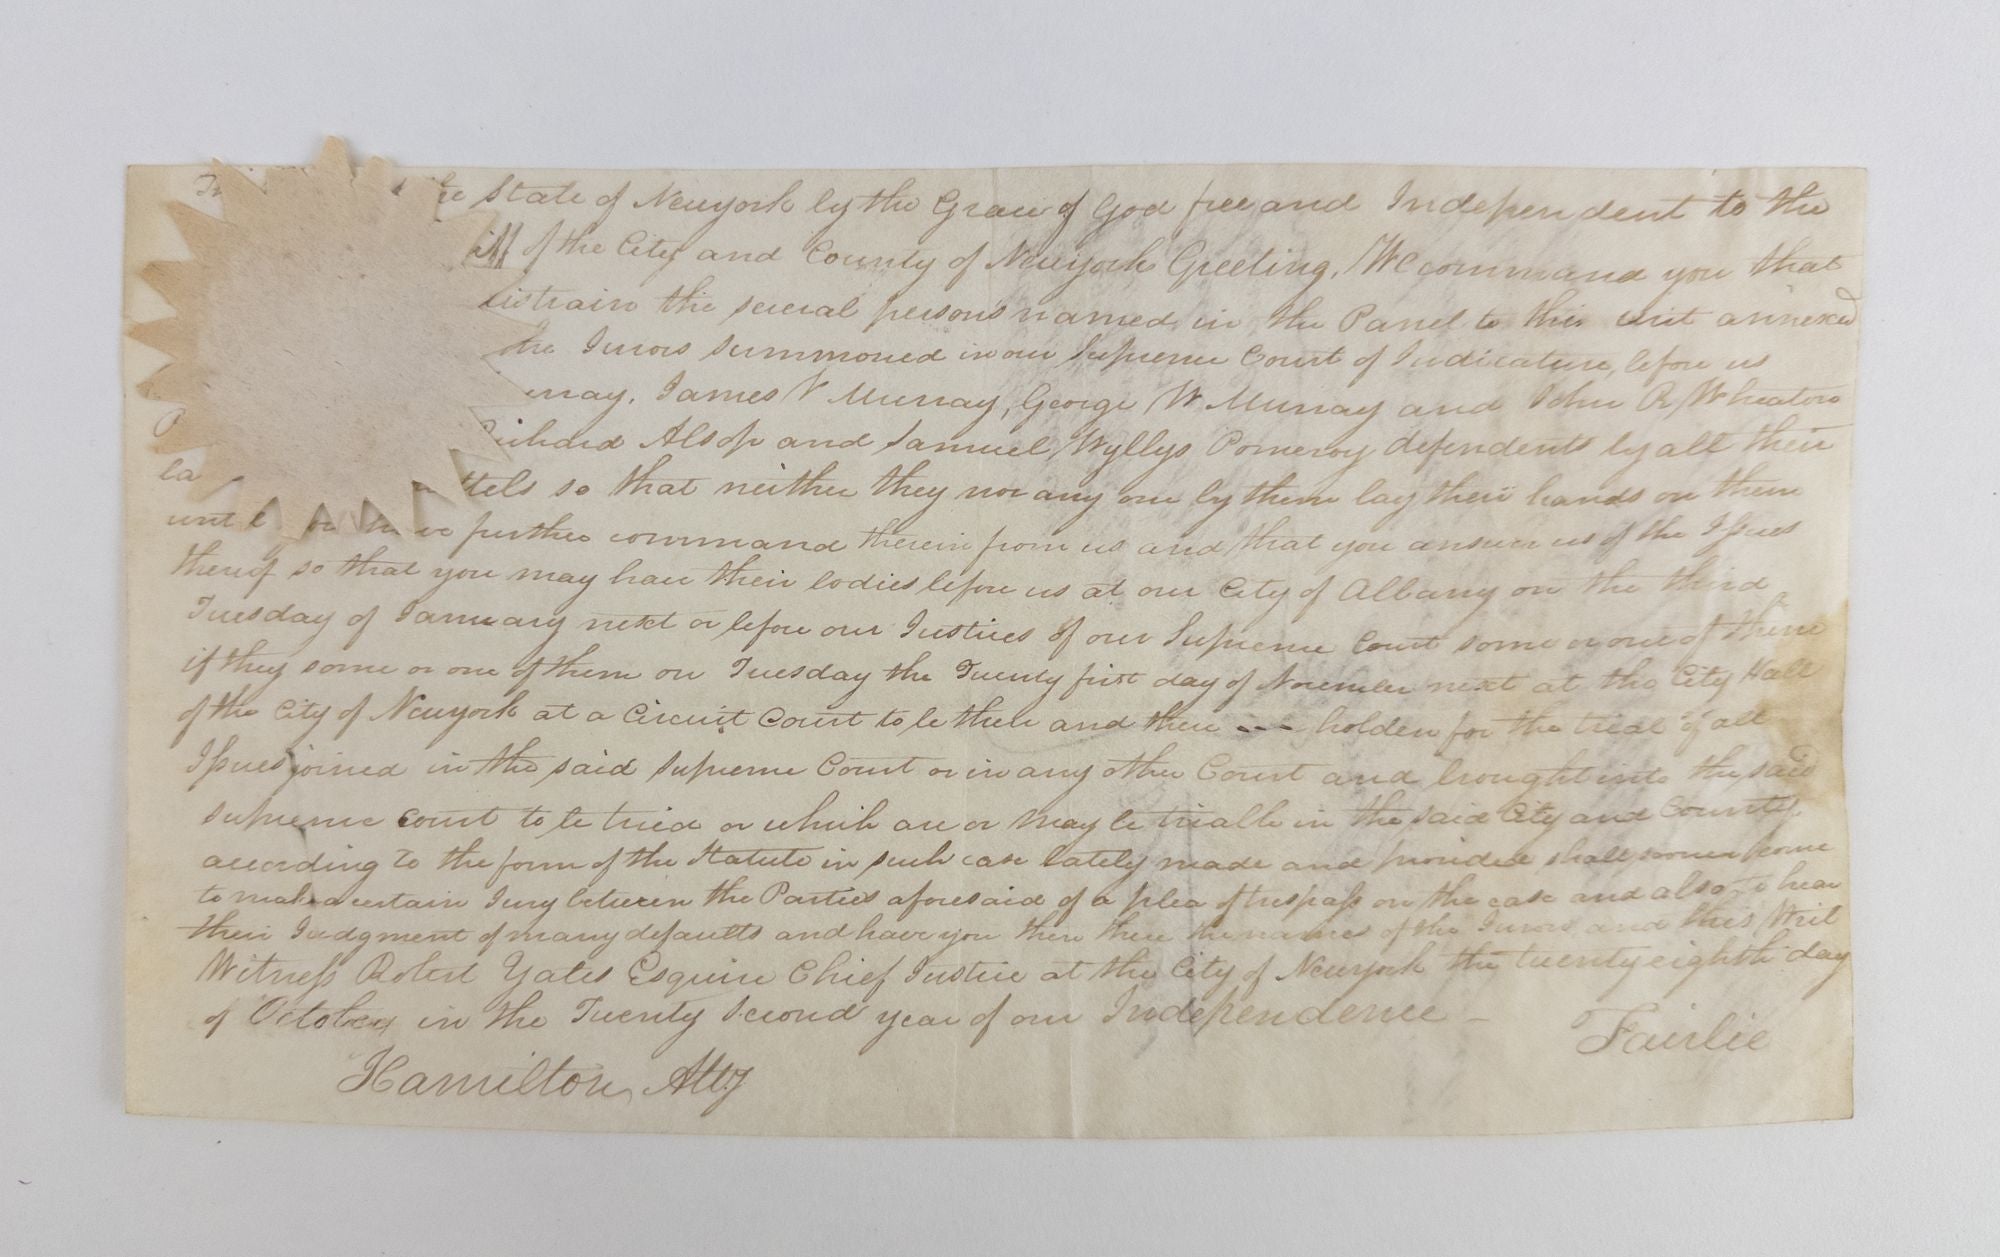 the State of Newyork by the Grace of God free and Independent to the
iff of the City and County of Newyork Greeting, We command you that
distrain the several persons named in the Panel to this writ annexed
the Jurors summoned in our Supreme Court of Judicature, before us
urray, James V Murray, George W Murray and John R Wheaton
Richard Alsop and Samuel Wyllys Pomeroy defendents by all their
la ttels so that neither they nor any one by them lay their hands on them
until further command therein from us and that you answer us of the Issues
thereof so that you may have their bodies before us at our City of Albany on the third
Tuesday of January next or before our Justices of our Supreme Court some or one of them
if they some or one of them on Tuesday the Twenty first day of November next at the City Hall
of the City of Newyork at a Circuit Court to be then and there --- holden for the trial of all
Issues joined in the said Supreme Court or in any other Court and brought into the said
Supreme Court to be tried or which are or may be triable in the said City and County
according to the form of the Statute in such case lately made and provided shall sooner come
to make a certain Jury between the Parties aforesaid of a plea of trespass on the case and also to hear
their Judgment of many defaults and have you then there the names of the Jurors and this Writ
Witness Robert Yates Esquire Chief Justice at the City of Newyork the twenty eighth day
of October in the Twenty Second year of our Independence -
Fairlie
Hamilton, Atty